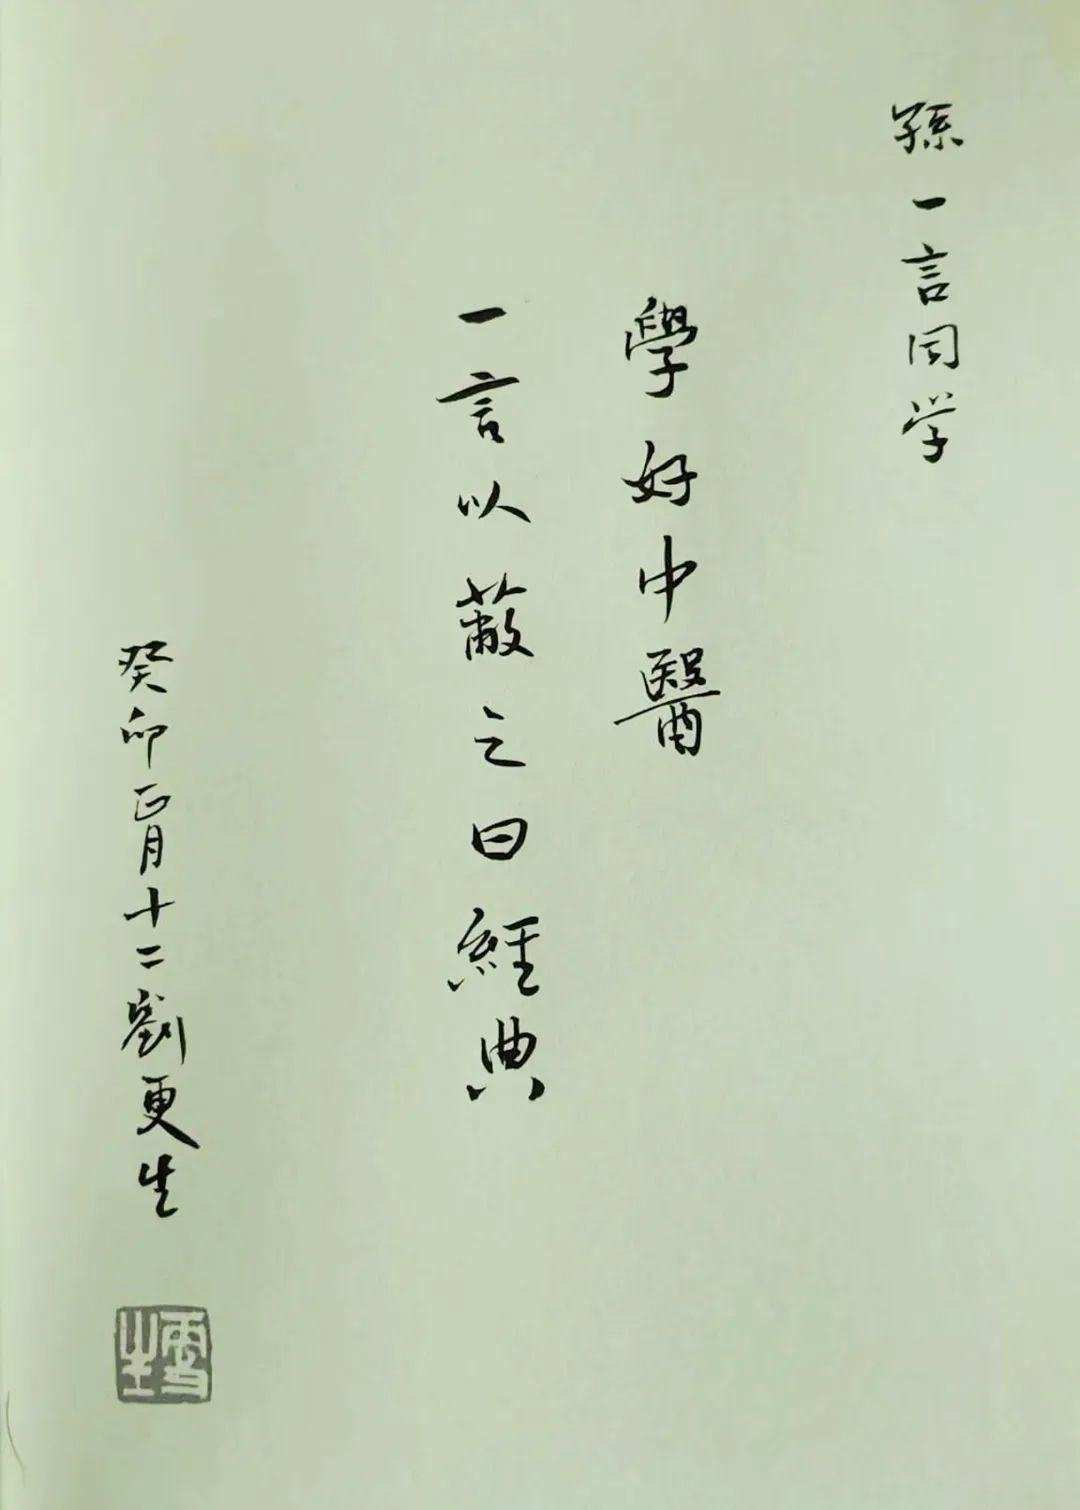 孫一言同学
學好中醫
一言以蔽之曰經典
癸卯正月十二劉更生